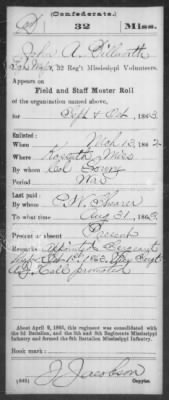 (Confederate.)
32 Miss.
John A. Dilworth
Sgt Major, 32 Reg't Mississippi Volunteers.
Appears on
Field and Staff Muster Roll
of the organization named above,
for Sept & Oct, 1863.
Enlisted:
When Mch 13, 1862
Where Miss
By whom Col
Period War
Last paid:
By whom C. W.
To what time Aug 31, 1863.
Present or absent Present
Remarks: Appointed Sergeant
Major 1863
promoted
About April 9, 1865, this regiment was consolidated with
the 3d Battalion, and the 5th and 8th Regiments Mississippi
Infantry and formed the 8th Battalion Mississippi Infantry.
Book mark:
J. Jacobson
Copyist.